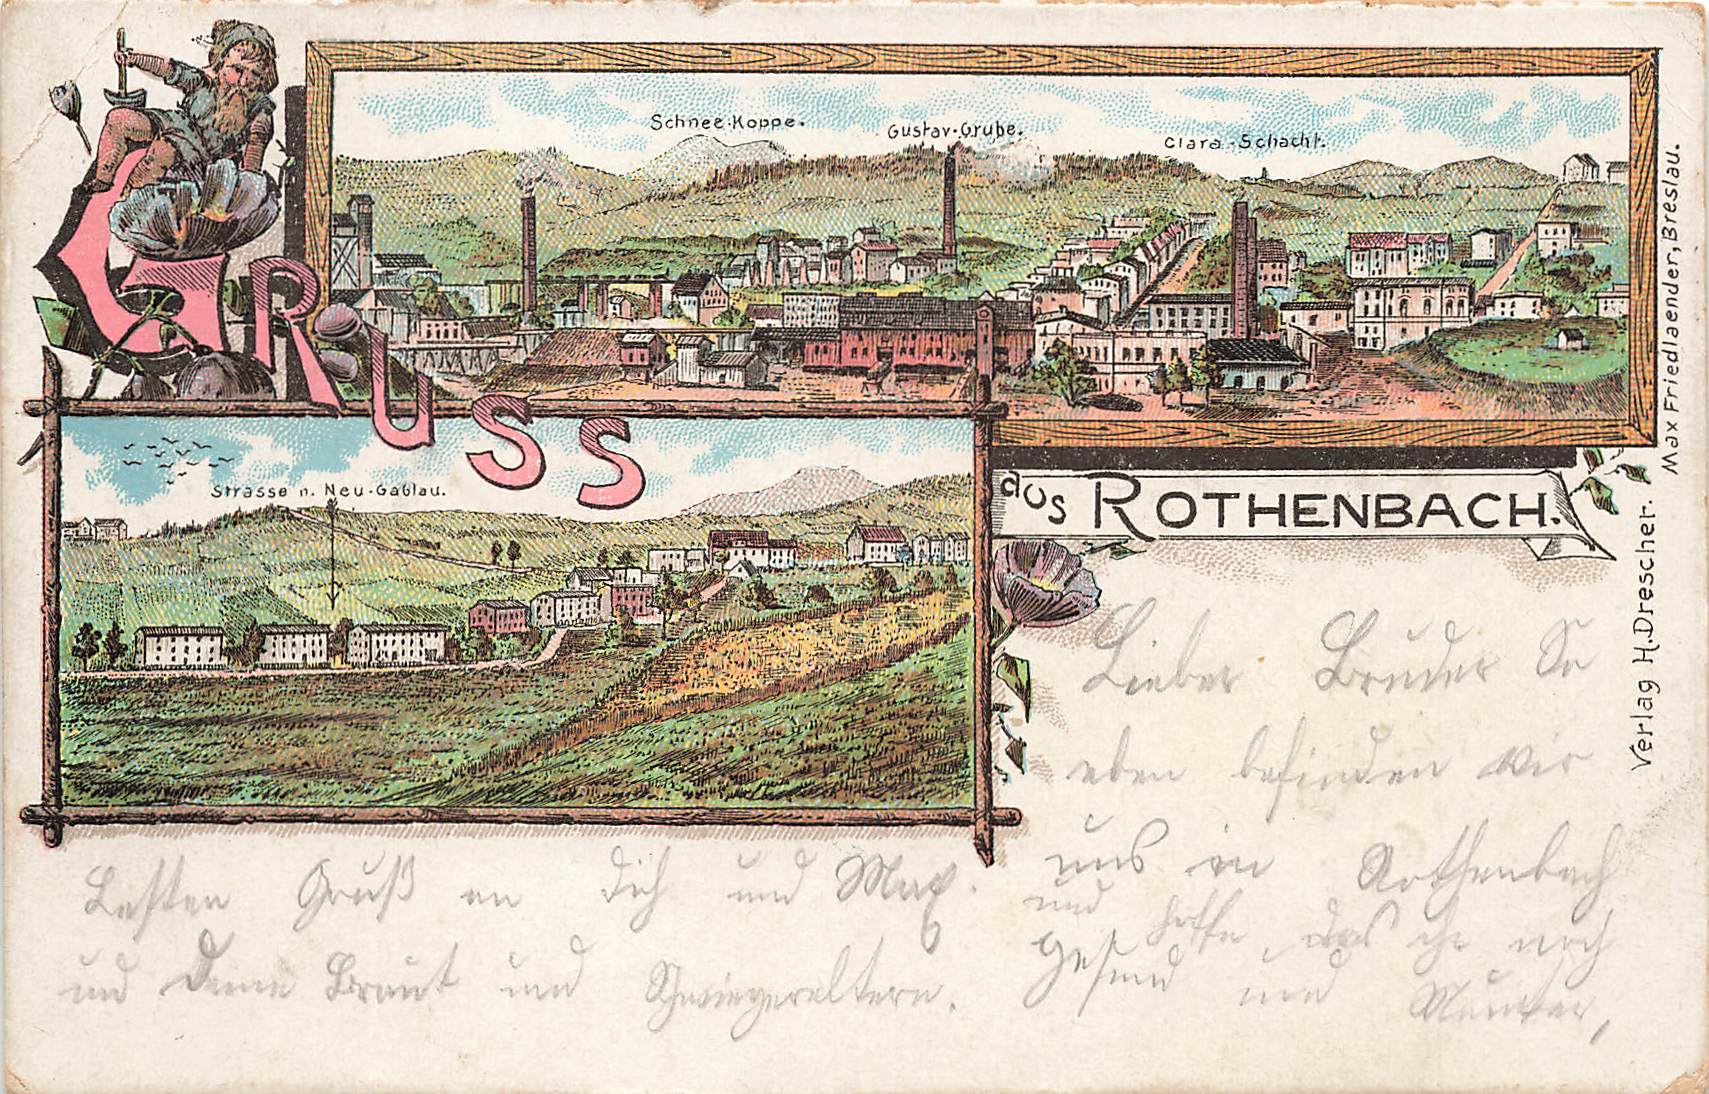 GRUSS
aus ROTHENBACH.
Schnee-Koppe.
Gustav-Grube.
Clara-Schacht.
Strasse n. Neu-Gablau.
Max Friedlaender, Breslau.
Verlag H. Drescher.
Lieber Bruder So
eben befinden wir
uns in Rothenbach
und hoffe, das ihr noch
gesund und Munter,
Besten Gruß an dich und Max.
und Deine Braut und Schwiegereltern.